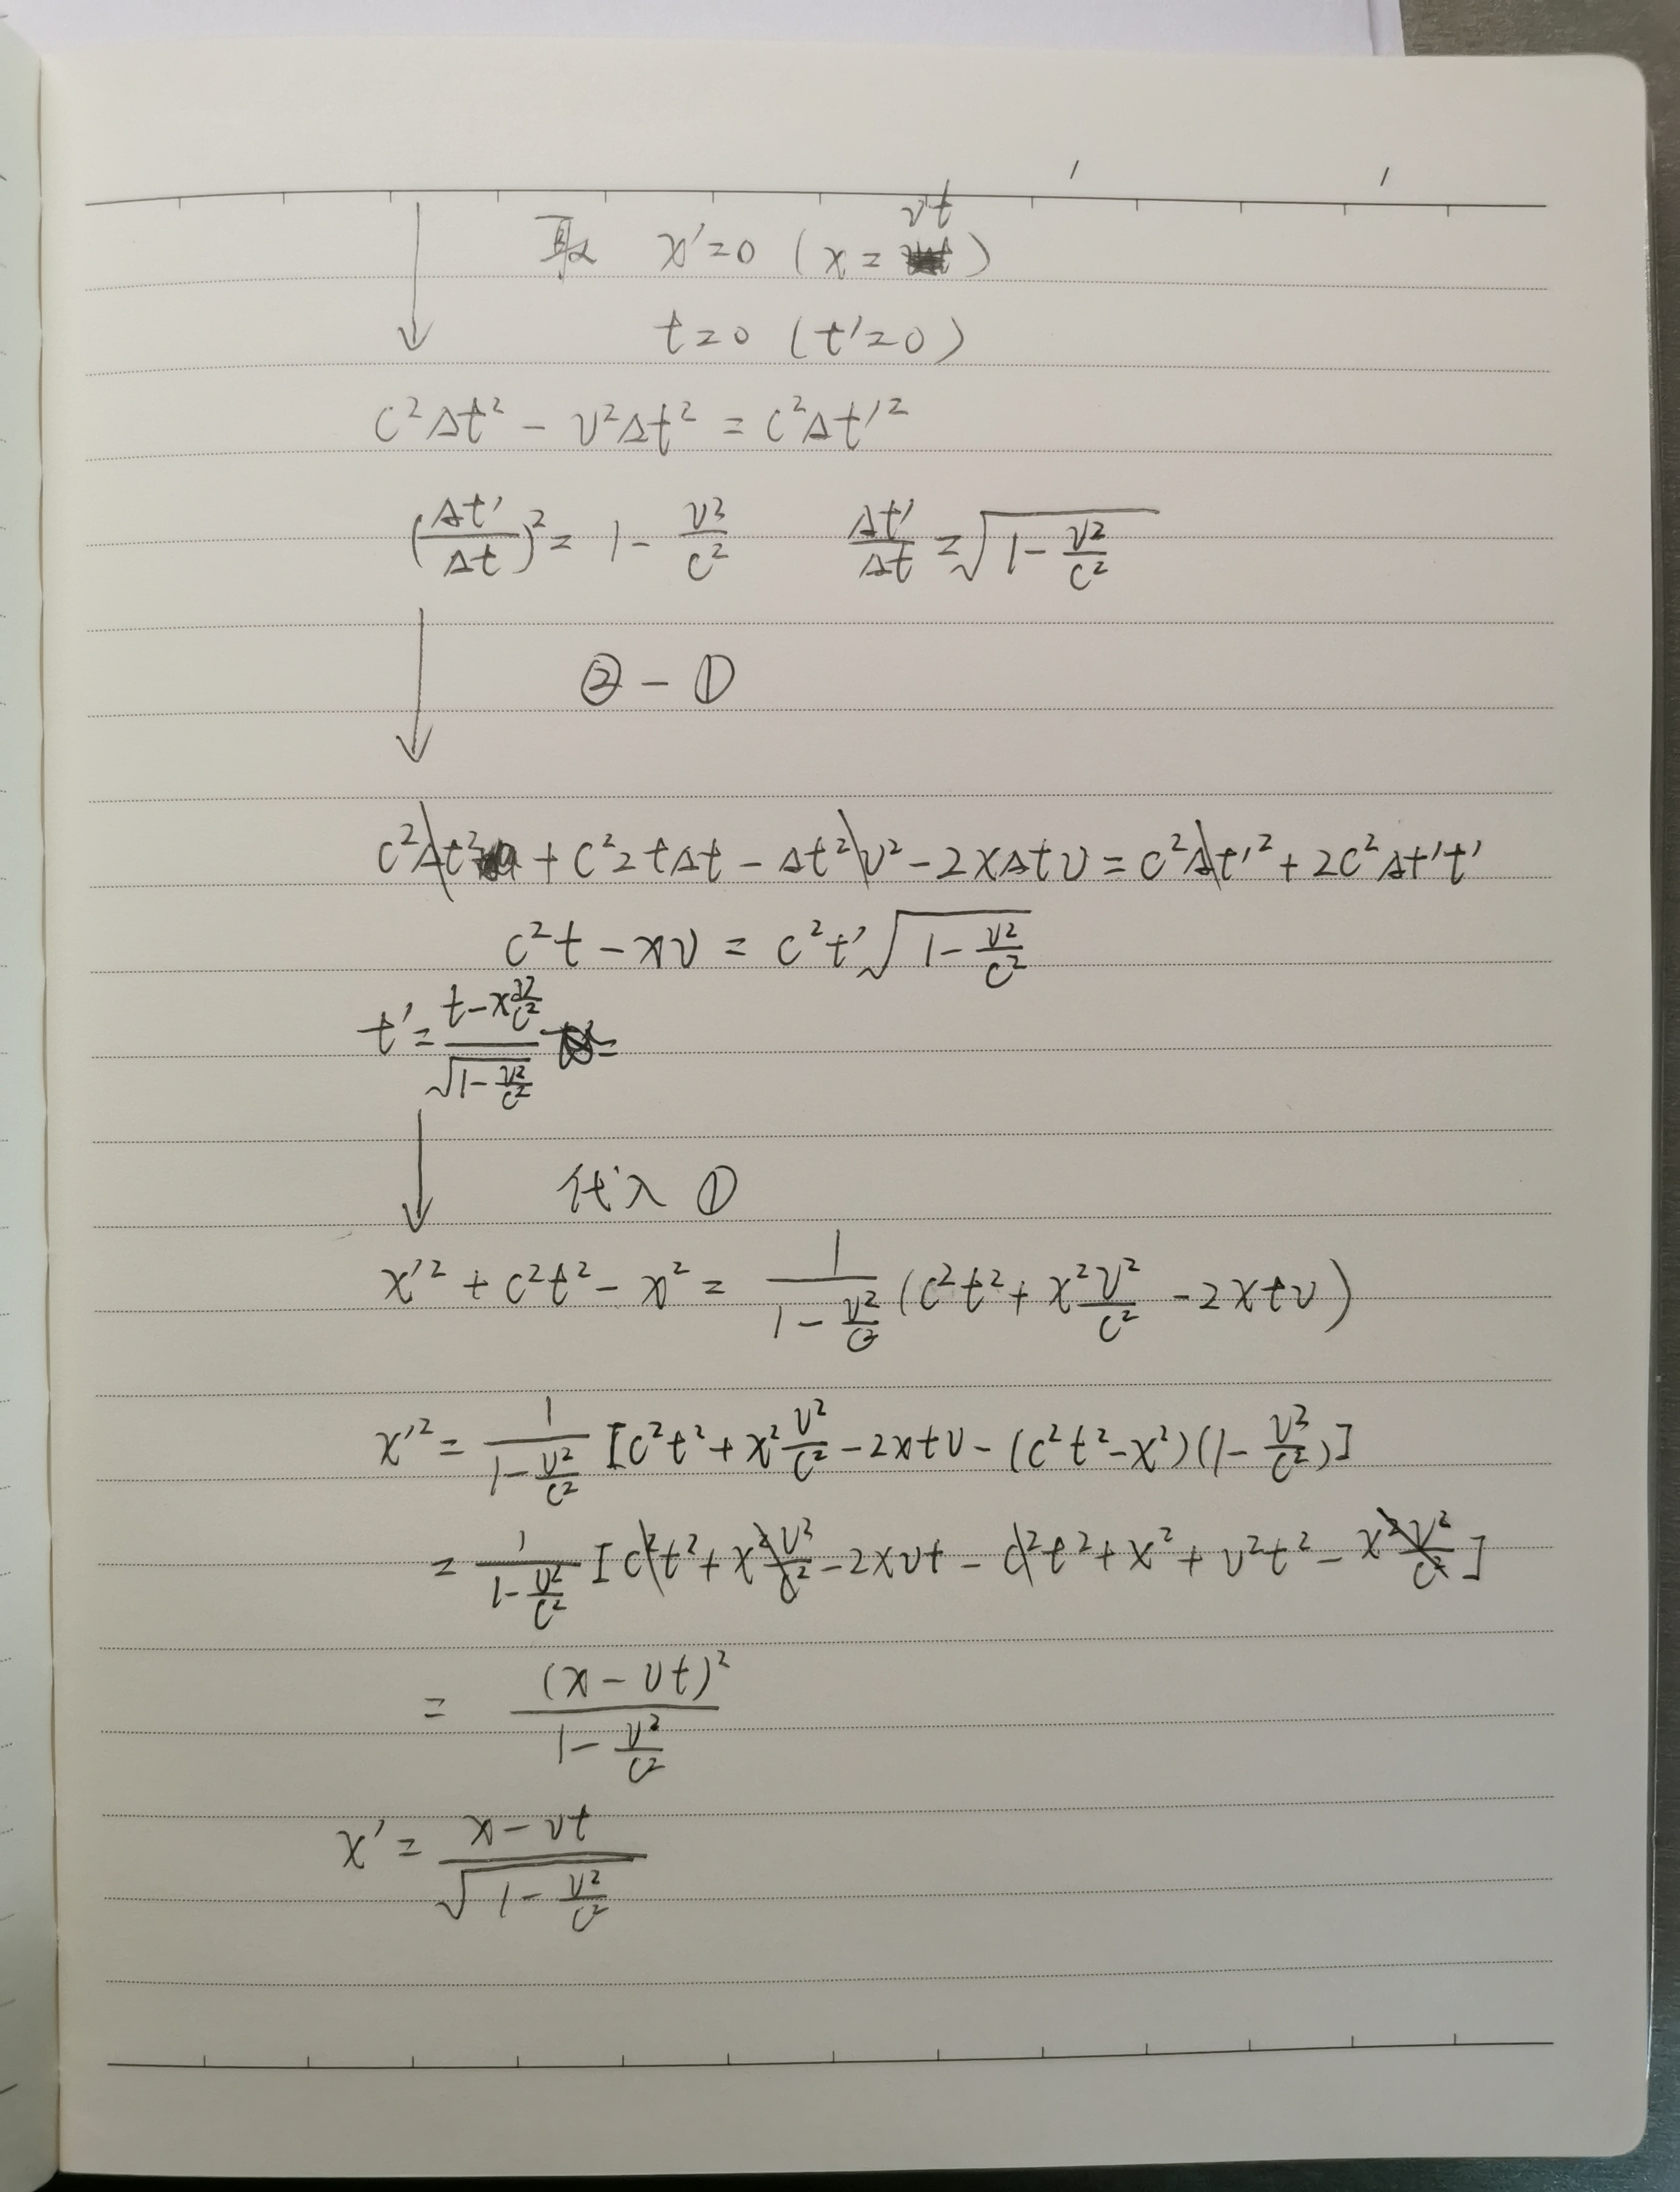 取 x'=0 (x = vt)
t=0 (t'=0)
c²Δt² - v²Δt² = c²Δt'²
(Δt'/Δt)² = 1 - v²/c²  Δt'/Δt = √(1 - v²/c²)
② - ①
c²Δt² + c²2tΔt - Δt²v² - 2xΔtv = c²Δt'² + 2c²Δt't'
c²t - xv = c²t'√(1 - v²/c²)
t' = (t - x v/c²)/√(1 - v²/c²)
代入 ①
x'² + c²t² - x² = 1/(1 - v²/c²) (c²t² + x² v²/c² - 2xtv)
x'² = 1/(1 - v²/c²) [c²t² + x² v²/c² - 2xtv - (c²t² - x²)(1 - v²/c²)]
= 1/(1 - v²/c²) [c²t² + x² v²/c² - 2xvt - c²t² + x² + v²t² - x² v²/c²]
= (x - vt)²/(1 - v²/c²)
x' = (x - vt)/√(1 - v²/c²)